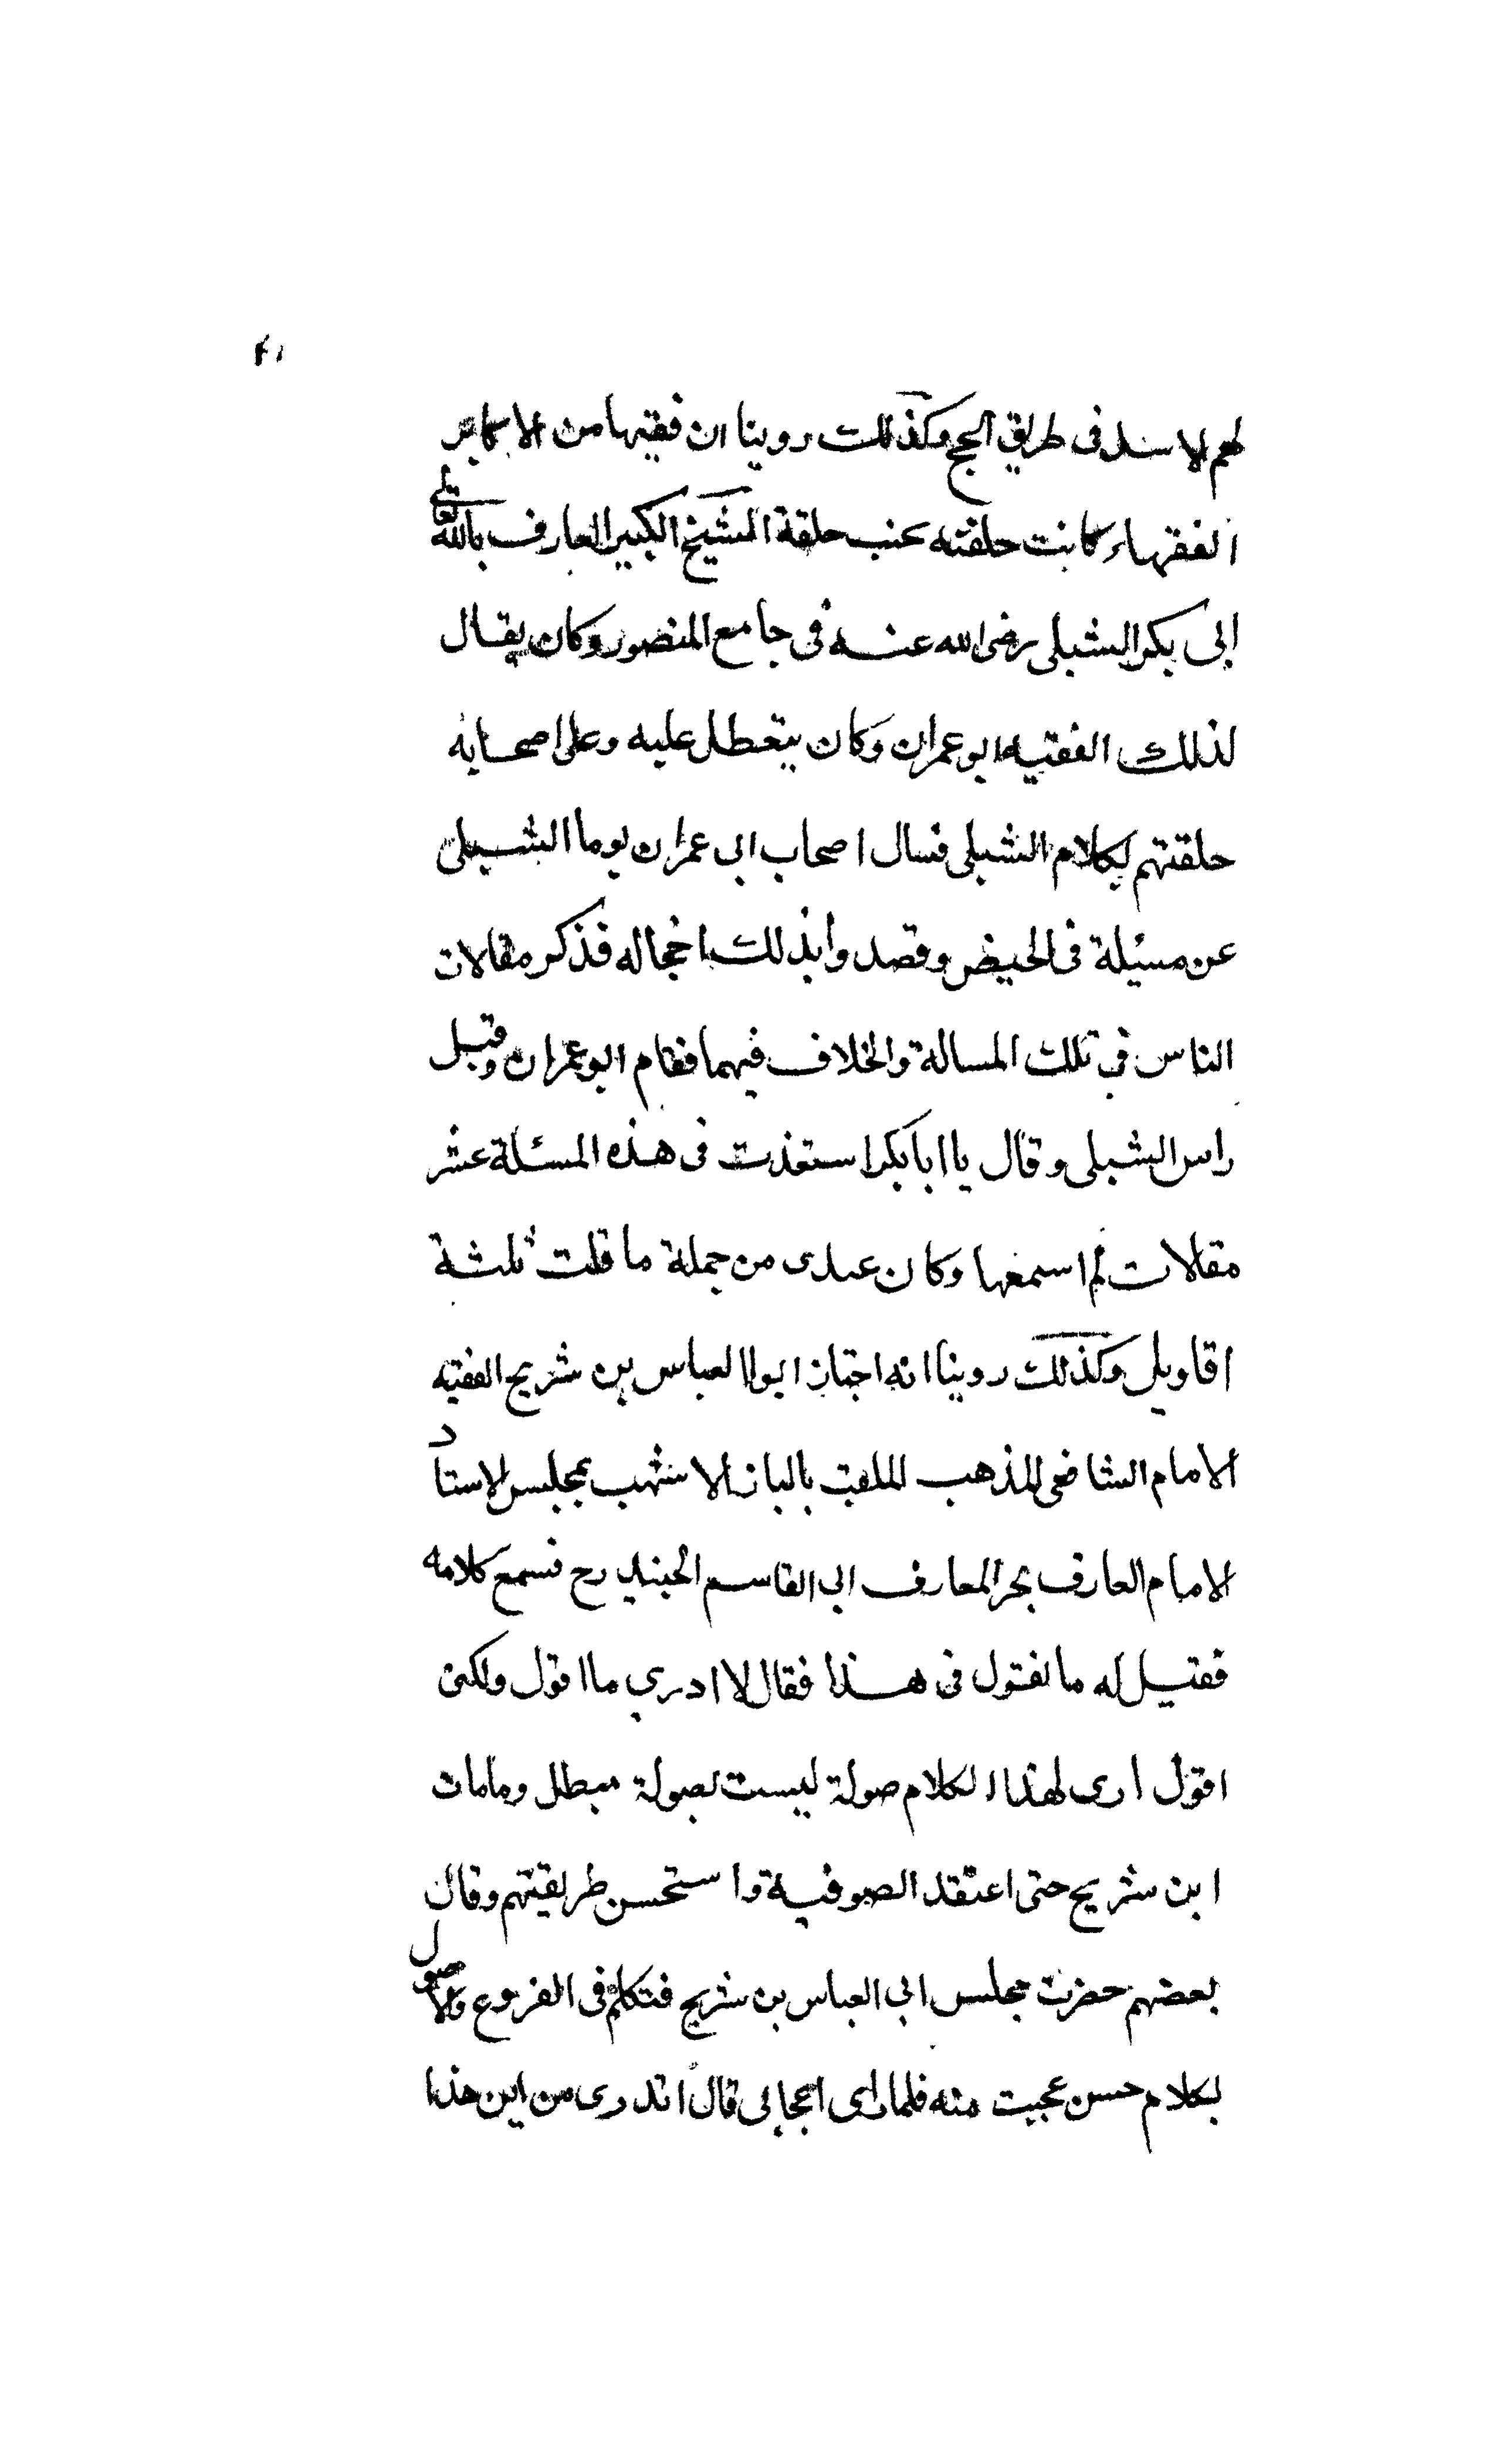 ٤١
لهم الاسد فى طريق الحج وكذلك روينا ان فقيها من الاكابر
الفقهاء كانت حلقته بجنب حلقة الشيخ الكبير العارف بالله تعالى
ابى بكر الشبلى رضى الله عنه فى جامع المنصور وكان يقال
لذلك الفقيه ابو عمران وكان يتعطل عليه وعلى اصحابه
حلقتهم لكلام الشبلى فسال اصحاب ابى عمران يوما الشبلى
عن مسئلة فى الحيض وقصدوا بذلك اخجاله فذكر مقالات
الناس فى تلك المسالة والخلاف فيها فقام ابو عمران وقبل
راس الشبلى وقال يا ابا بكر استفدت فى هذه المسئلة عشر
مقالات لم اسمعها وكان عندى من جملة ما قلت ثلثة
اقاويل وكذلك روينا انه اجتاز ابو العباس بن شريح الفقيه
الامام الشافعى المذهب الملقب بالباز الاشهب بمجلس الاستاد
الامام العارف بحر المعارف ابى القاسم الجنيد رح فسمع كلامه
فقيل له ما تقول فى هذا فقال لا ادري ما اقول ولكن
اقول ارى لهذا الكلام صولة ليست بصولة مبطل وما مات
ابن شريح حتى اعتقد الصوفية واستحسن طريقتهم وقال
بعضهم حضرت مجلس ابى العباس بن شريح فتكلم فى الفروع والاصول
بكلام حسن عجبت منه فلما راى اعجابى قال اتدرى من اين هذا